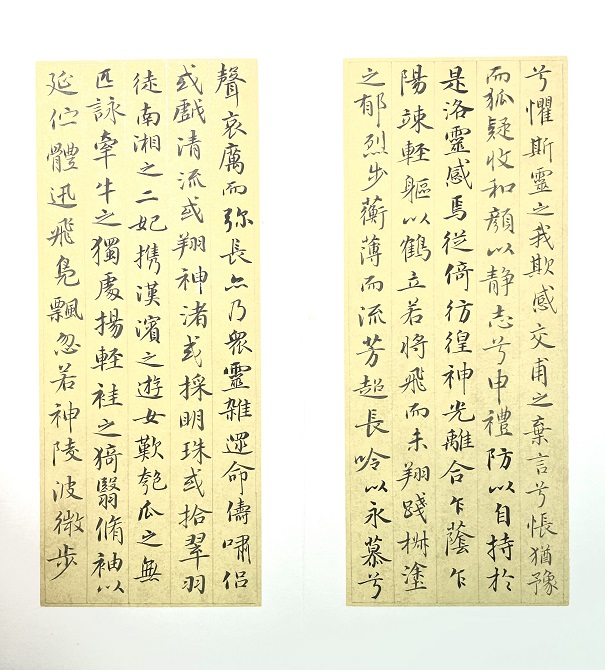 兮懼斯靈之我欺感交甫之棄言兮悵猶豫
而狐疑收和顏以静志兮申禮防以自持於
是洛靈感焉徙倚彷徨神光離合乍蔭乍
陽竦輕軀以鶴立若將飛而未翔踐椒塗
之郁烈步蘅薄而流芳超長吟以永慕兮
聲哀厲而弥長尒乃衆靈雜遝命儔嘯侣
或戲清流或翔神渚或採明珠或拾翠羽
從南湘之二妃携漢濱之遊女歎匏瓜之無
匹詠牽牛之獨處揚輕袿之猗翳脩袖以
延佇體迅飛鳧飄忽若神陵波微步